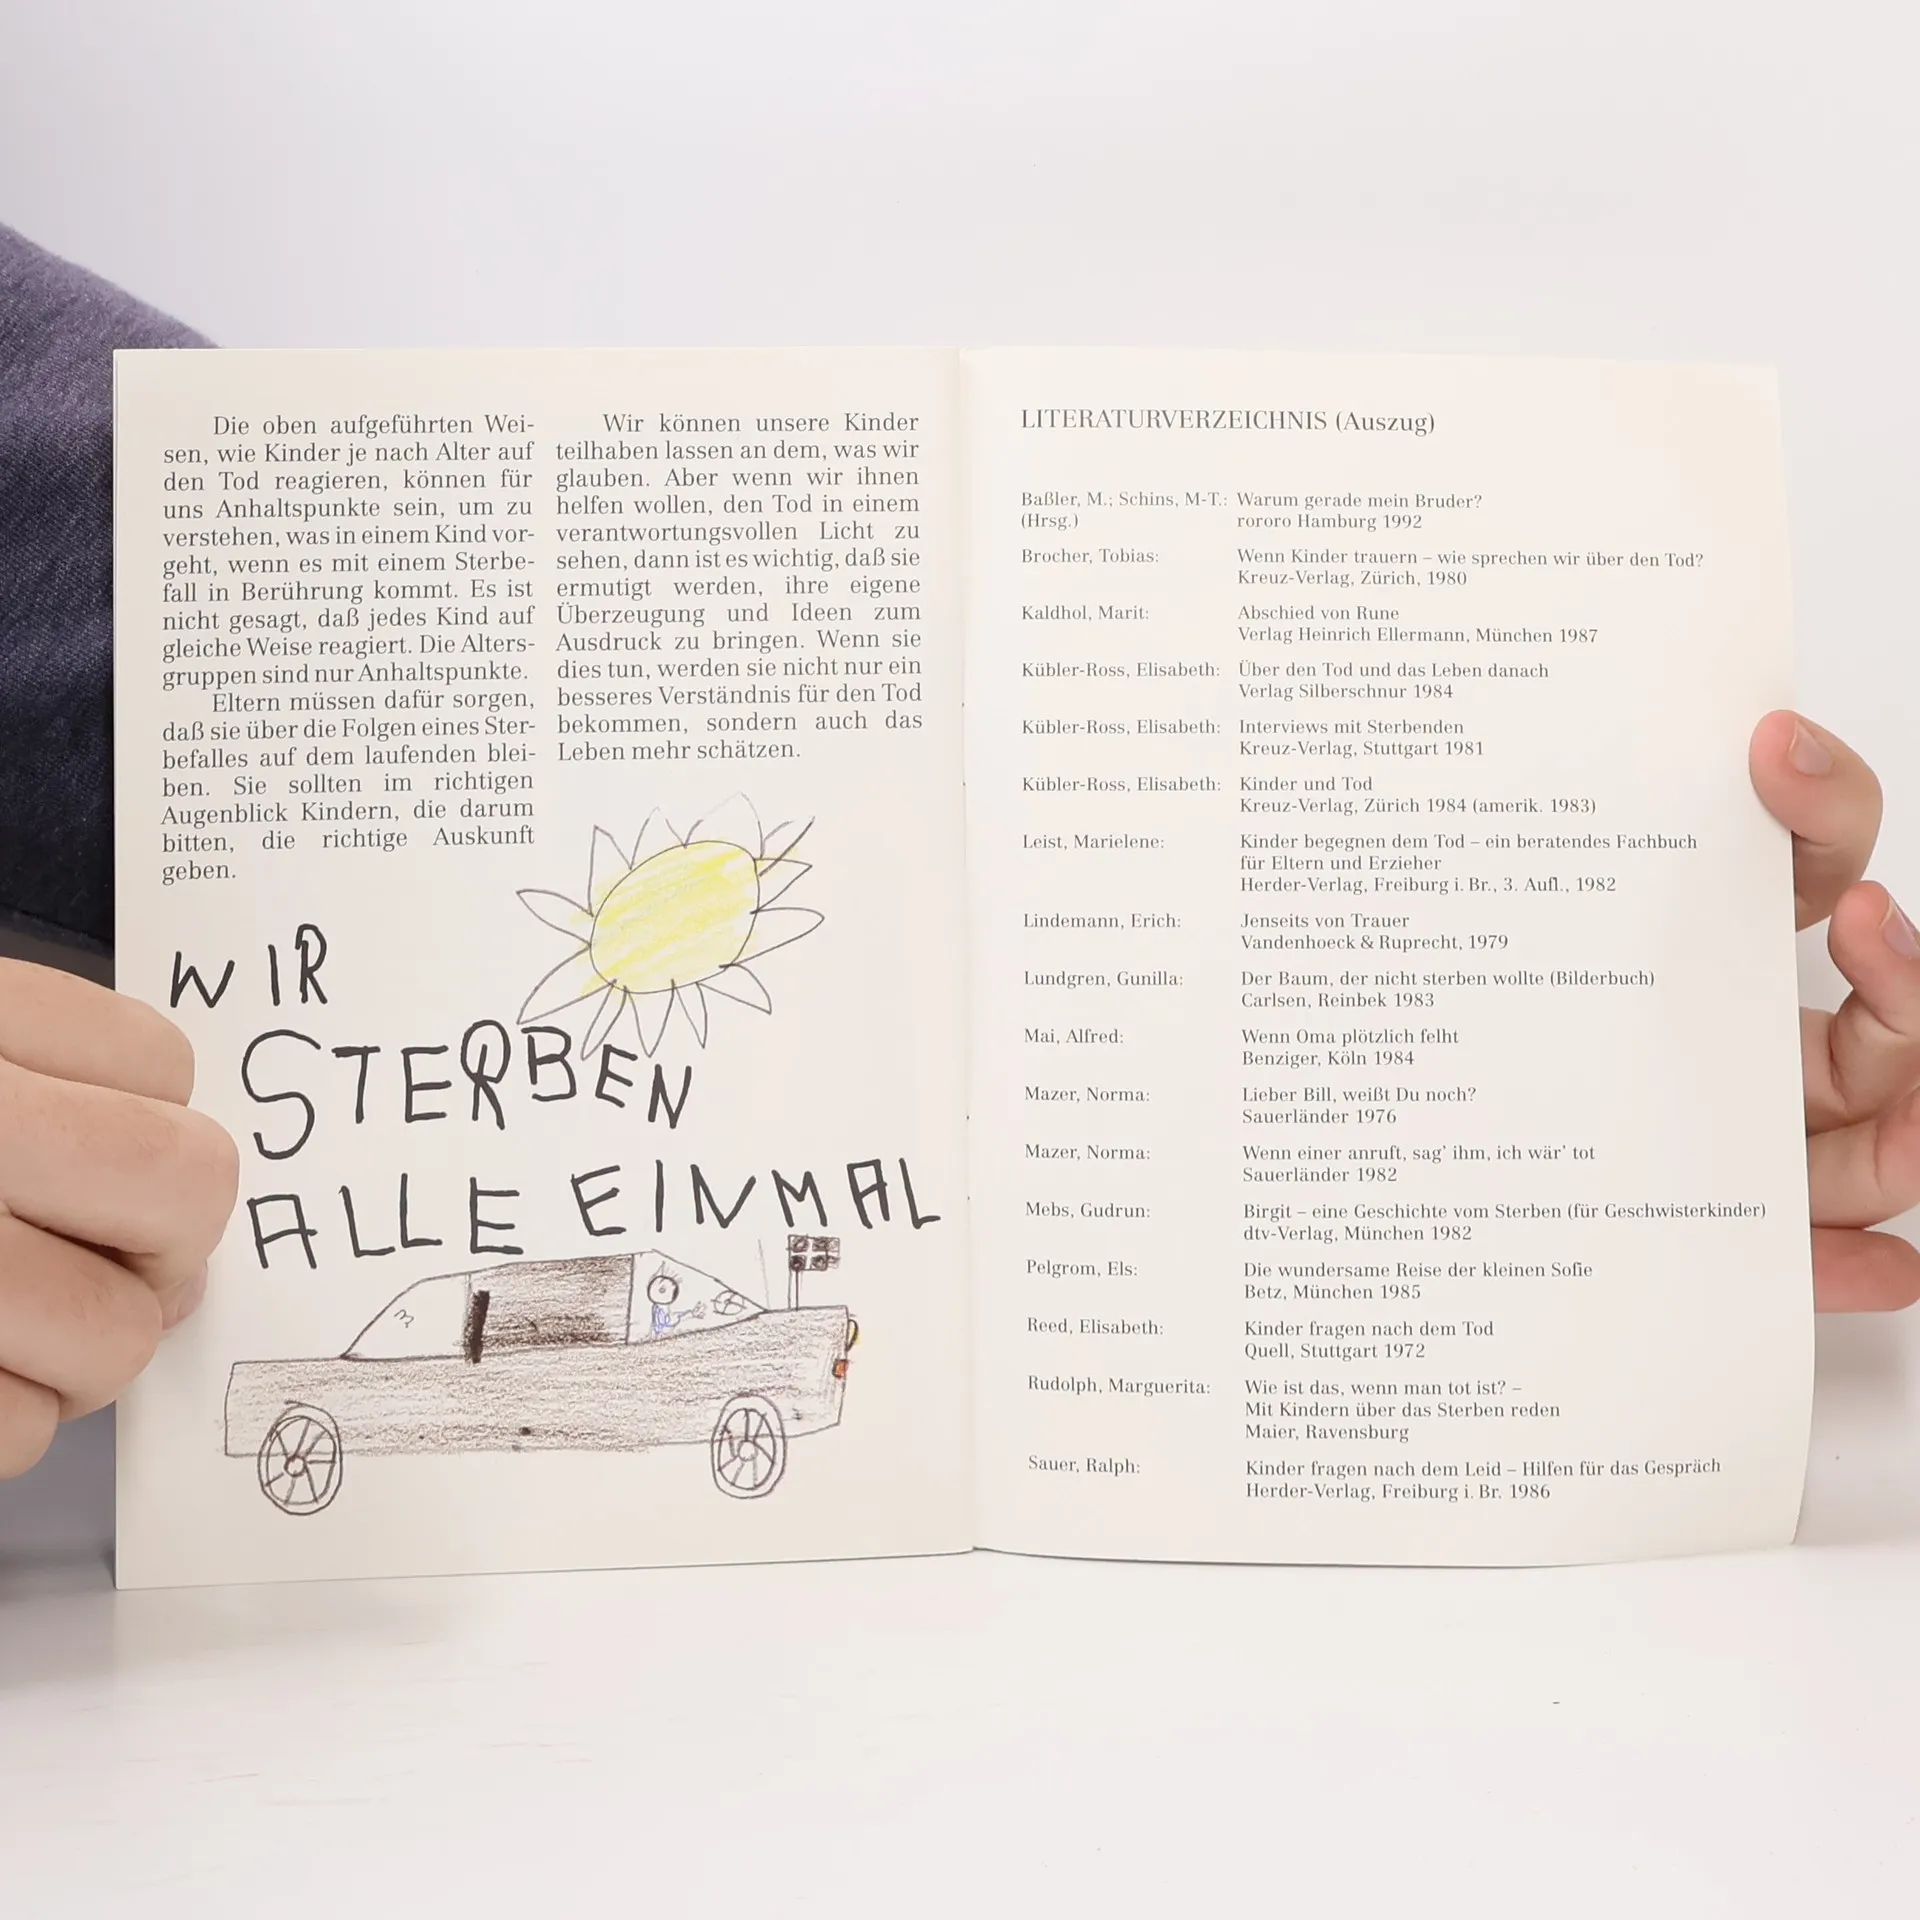 Die oben aufgeführten Wei-
sen, wie Kinder je nach Alter auf
den Tod reagieren, können für
uns Anhaltspunkte sein, um zu
verstehen, was in einem Kind vor-
geht, wenn es mit einem Sterbe-
fall in Berührung kommt. Es ist
nicht gesagt, daß jedes Kind auf
gleiche Weise reagiert. Die Alters-
gruppen sind nur Anhaltspunkte.
Eltern müssen dafür sorgen,
daß sie über die Folgen eines Ster-
befalles auf dem laufenden blei-
ben. Sie sollten im richtigen
Augenblick Kindern, die darum
bitten, die richtige Auskunft
geben.
Wir können unsere Kinder
teilhaben lassen an dem, was wir
glauben. Aber wenn wir ihnen
helfen wollen, den Tod in einem
verantwortungsvollen Licht zu
sehen, dann ist es wichtig, daß sie
ermutigt werden, ihre eigene
Überzeugung und Ideen zum
Ausdruck zu bringen. Wenn sie
dies tun, werden sie nicht nur ein
besseres Verständnis für den Tod
bekommen, sondern auch das
Leben mehr schätzen.
WIR
STERBEN
ALLE EINMAL
LITERATURVERZEICHNIS (Auszug)
Baßler, M.; Schins, M-T.: Warum gerade mein Bruder?
(Hrsg.) rororo Hamburg 1992
Brocher, Tobias: Wenn Kinder trauern – wie sprechen wir über den Tod?
Kreuz-Verlag, Zürich, 1980
Kaldhol, Marit: Abschied von Rune
Verlag Heinrich Ellermann, München 1987
Kübler-Ross, Elisabeth: Über den Tod und das Leben danach
Verlag Silberschnur 1984
Kübler-Ross, Elisabeth: Interviews mit Sterbenden
Kreuz-Verlag, Stuttgart 1981
Kübler-Ross, Elisabeth: Kinder und Tod
Kreuz-Verlag, Zürich 1984 (amerik. 1983)
Leist, Marielene: Kinder begegnen dem Tod – ein beratendes Fachbuch
für Eltern und Erzieher
Herder-Verlag, Freiburg i. Br., 3. Aufl., 1982
Lindemann, Erich: Jenseits von Trauer
Vandenhoeck & Ruprecht, 1979
Lundgren, Gunilla: Der Baum, der nicht sterben wollte (Bilderbuch)
Carlsen, Reinbek 1983
Mai, Alfred: Wenn Oma plötzlich felht
Benziger, Köln 1984
Mazer, Norma: Lieber Bill, weißt Du noch?
Sauerländer 1976
Mazer, Norma: Wenn einer anruft, sag' ihm, ich wär' tot
Sauerländer 1982
Mebs, Gudrun: Birgit – eine Geschichte vom Sterben (für Geschwisterkinder)
dtv-Verlag, München 1982
Pelgrom, Els: Die wundersame Reise der kleinen Sofie
Betz, München 1985
Reed, Elisabeth: Kinder fragen nach dem Tod
Quell, Stuttgart 1972
Rudolph, Marguerita: Wie ist das, wenn man tot ist? –
Mit Kindern über das Sterben reden
Maier, Ravensburg
Sauer, Ralph: Kinder fragen nach dem Leid – Hilfen für das Gespräch
Herder-Verlag, Freiburg i. Br. 1986